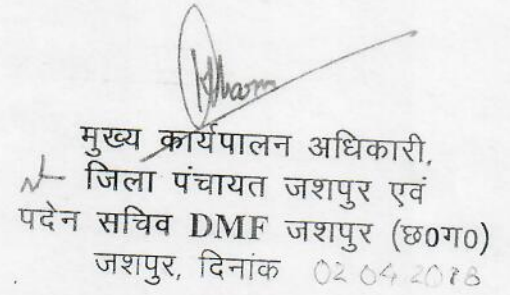 मुख्य कार्यपालन अधिकारी,
जिला पंचायत जशपुर एवं
पदेन सचिव DMF जशपुर (छ0ग0)
जशपुर, दिनांक 02 04 2018